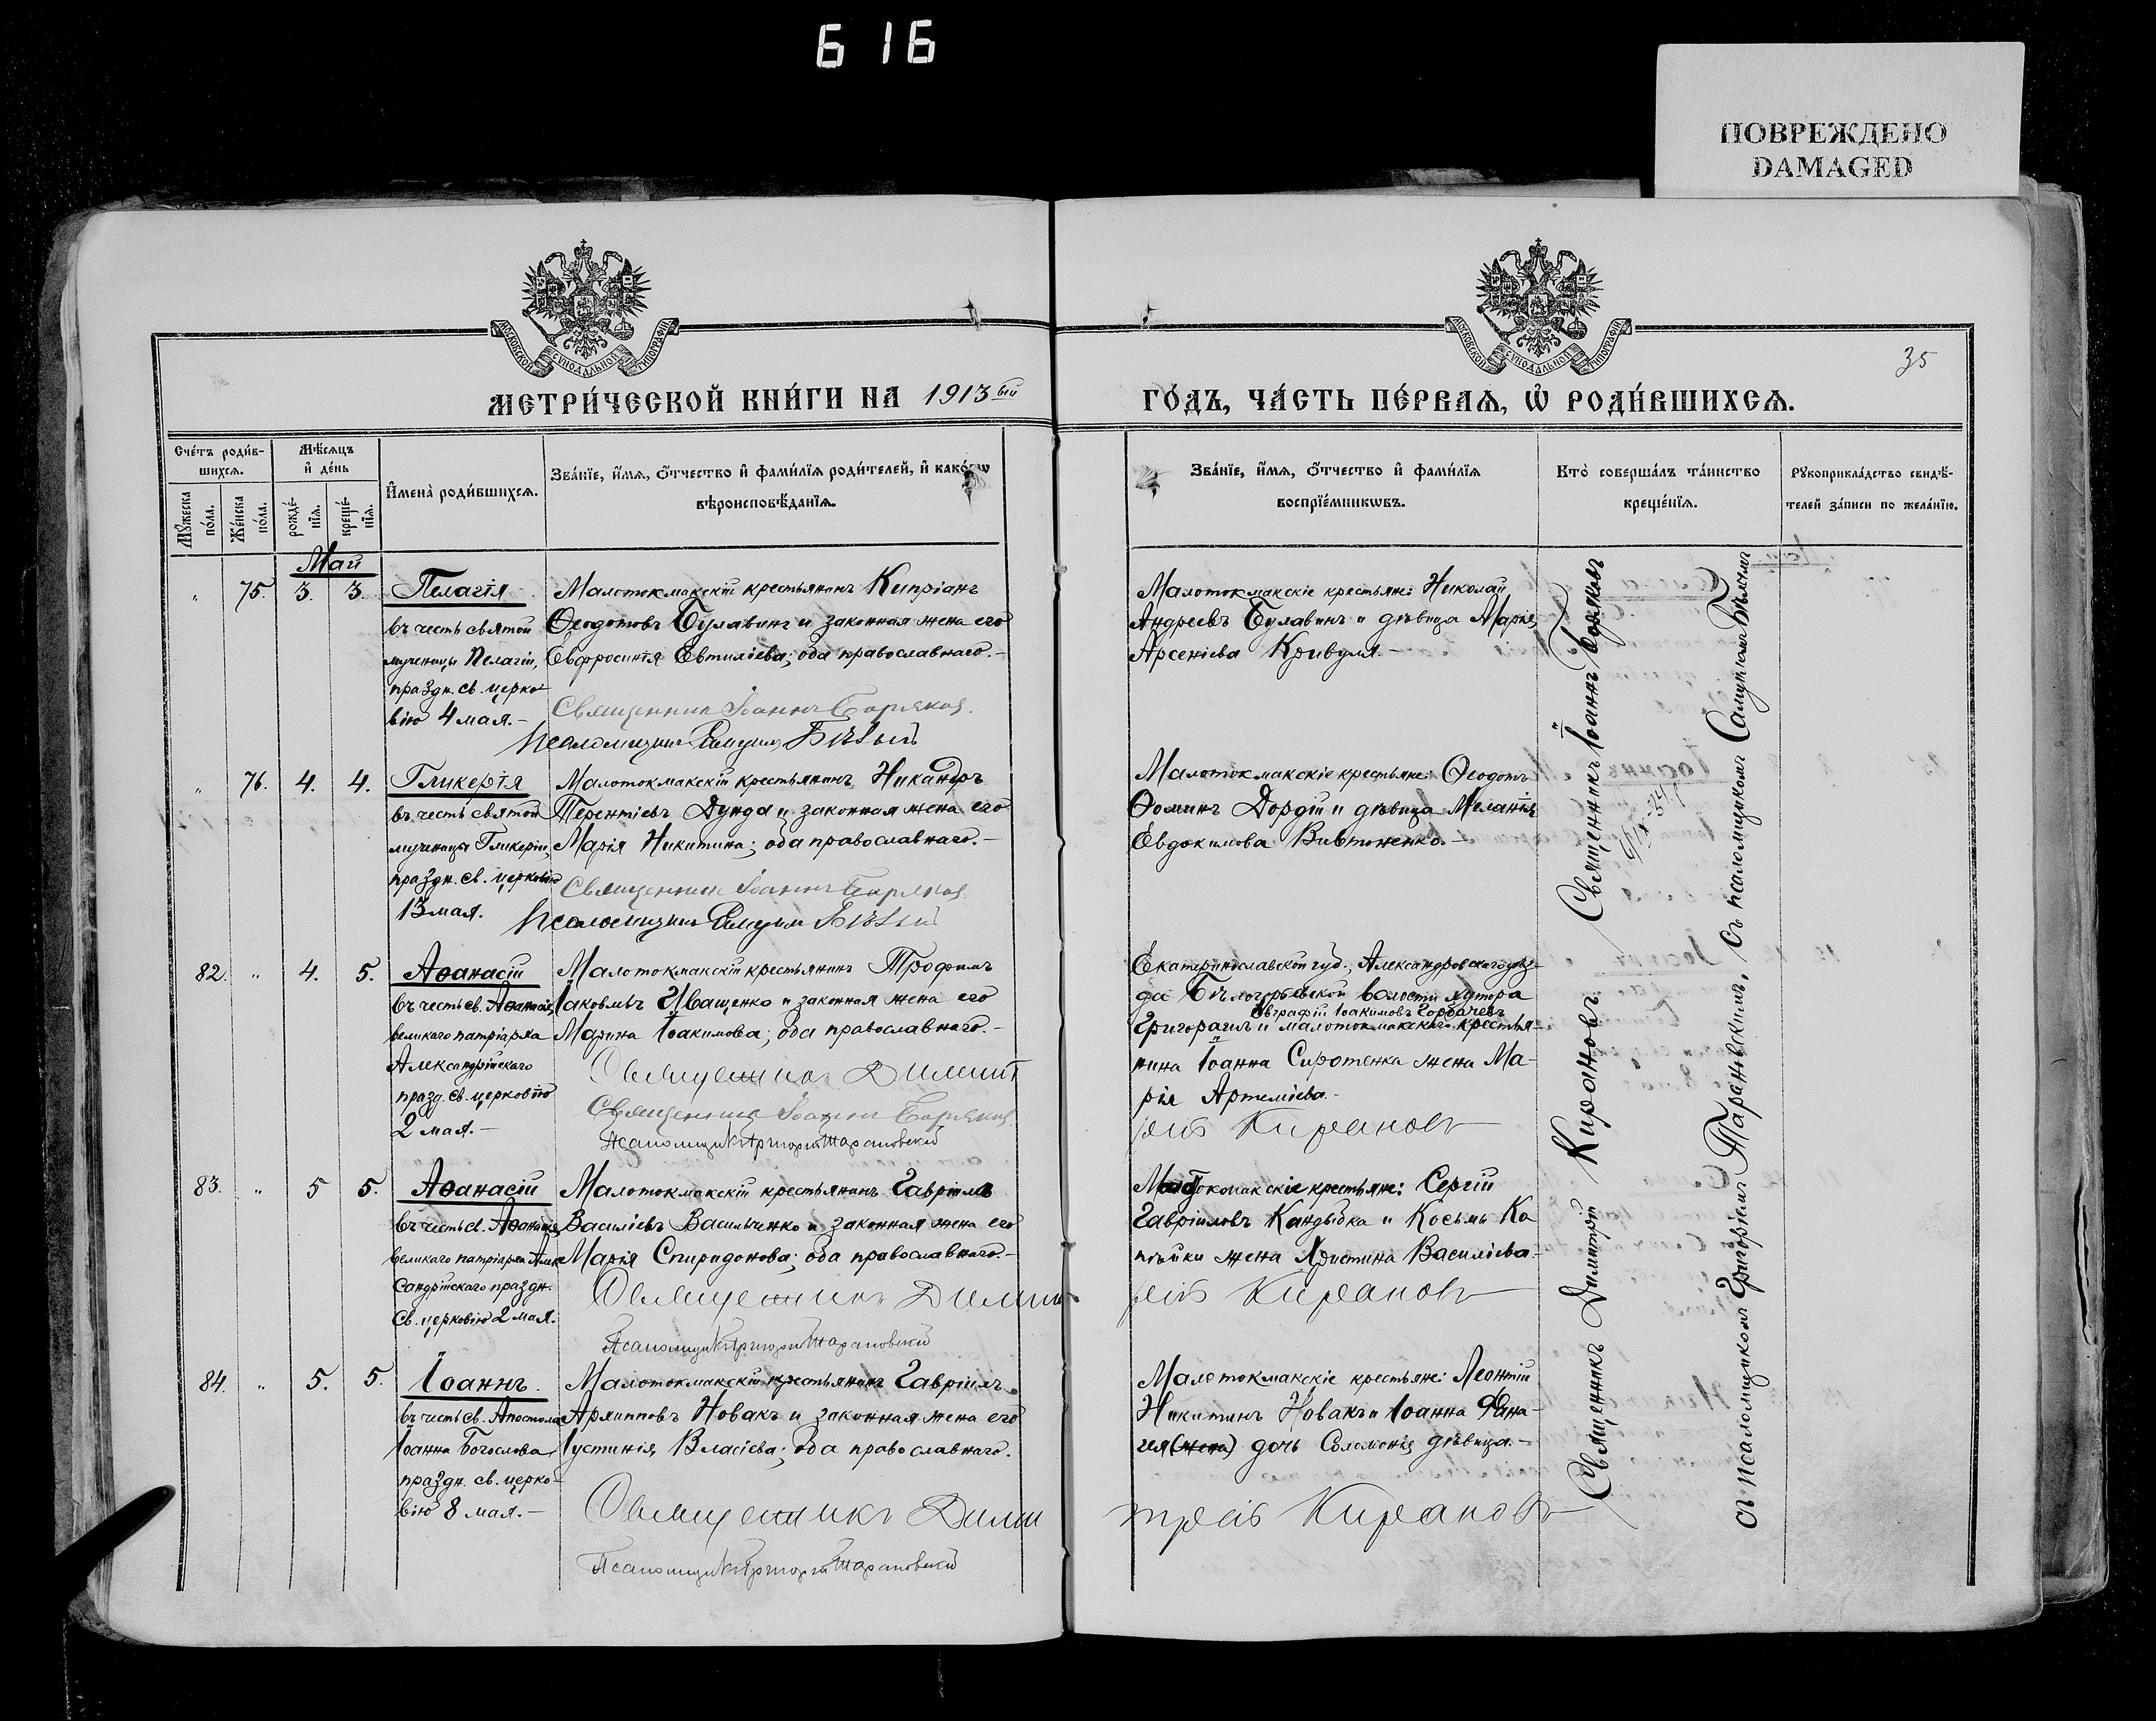 616
ПОВРЕЖДЕНО
DAMAGED
МОСКОВСКОЙ СѴНОДАЛЬНОЙ ТИПОГРАФІИ
МОСКОВСКОЙ СѴНОДАЛЬНОЙ ТИПОГРАФІИ
35
МЕТРИ́ЧЕСКОЙ КНИ́ГИ НА 1913 ый
ГО́ДЪ, ЧА́СТЬ ПЕ́РВАѦ, Ѡ РОДИ́ВШИХСѦ.
Сче́тъ роди́в-
шихсѧ.
Мꙋ́жеска
по́ла.
Же́нска
по́ла.
Мѣ́сѧцъ
и҆ де́нь
рожде́-
нїѧ.
креще́-
нїѧ.
И҆мена̀ роди́вшихсѧ.
Зва́нїе, и҆́мѧ, ѻ҆́тчество и҆ фами́лїѧ роди́телей, и҆ како́гѡ
вѣроисповѣ́данїѧ.
Зва́нїе, и҆́мѧ, ѻ҆́тчество и҆ фами́лїѧ
воспрїе́мникѡвъ.
Кто̀ соверша́лъ та́инство
креще́нїѧ.
Рꙋкоприкла́дство свидѣ́-
телей за́писи по жела́нїю.
Май
" 75. 3. 3.
Пелагія
въ честь святой
мученицы Пелагіи,
праздн. св. церко-
вію 4 мая.-
Малотокмакскій крестьянинъ Кипріанъ
Ѳеодотовъ Булавинъ и законная жена его
Евфросинія Евтиліева; оба православнаго.-
Священникъ Іоаннъ Боряковъ.
Псаломщикъ Самуилъ Бѣлый
Малотокмакскіе крестьяне: Николай
Андреевъ Булавинъ и дѣвица Марія
Арсеніева Кривуля.-
" 76. 4. 4.
Гликерія
въ честь святой
мученицы Гликеріи,
праздн. св. церковію
13 мая.
Малотокмакскій крестьянинъ Никандръ
Терентіевъ Дунда и законная жена его
Марія Никитина; оба православнаго.-
Священникъ Іоаннъ Боряковъ.
Псаломщикъ Самуилъ Бѣлый
Малотокмакскіе крестьяне: Ѳеодотъ
Ѳоминъ Дордій и дѣвица Меланія
Евдокимова Вивтоненко.-
82. " 4. 5.
Аѳанасій
въ честь св. Аѳанасія,
великаго патріарха
Александрійскаго
празд. св. церковію
2 мая.-
Малотокмакскій крестьянинъ Трофимъ
Іаковлевъ Иващенко и законная жена его
Марина Іоакимова; оба православнаго.-
Священникъ Димит
Священникъ Іоаннъ Боряковъ.
Псаломщикъ Григорій Тарановскій
Екатеринославской губ., Александровскаго уѣз-
да Бѣлогорьевской волости хутора
Евграфій Іоакимовъ Горбачевъ
Григорагил и малотокмакскаго крестья-
нина Іоанна Сиротенка жена Ма-
рія Артеміева.-
рій Кирановъ
83. " 5 5.
Аѳанасій
въ честь св. Аѳанасія,
великаго патріарха Алек-
сандрійскаго праздн.
св. церковію 2 мая.
Малотокмакскій крестьянинъ Гавріилъ
Василіевъ Васильченко и законная жена его
Марія Спиридонова; оба православнаго.-
Священникъ Димит
Псаломщикъ Григорій Тарановскій
Малотокмакскіе крестьяне: Сергій
Гавріиловъ Кандыбка и Косьмы Ко
пѣйки жена Христина Василіева.
рій Кирановъ
84. " 5. 5.
Іоаннъ.
въ честь св. Апостола
Іоанна Богослова
праздн. св. церко-
вію 8 мая.-
Малотокмакскій крестьянинъ Гавріилъ
Архипповъ Новакъ и законная жена его
Іустинія Власіева; оба православнаго.
Священникъ Дими
Псаломщикъ Григорій Тарановскій
Малотокмакскіе крестьяне: Леонтій
Никитинъ Новакъ и Іоанна Фана-
гея (жена) дочь Соломонія дѣвица.-
трій Кирановъ
Священникъ Димитрій Кирановъ. Священникъ Іоаннъ Боряковъ
съ псаломщикомъ Григоріемъ Тарановскимъ, съ псаломщикомъ Самуиломъ Бѣлымъ